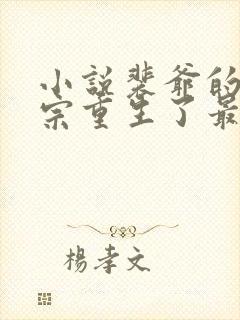 小說裴爺的
宗重生了最
楊孝文